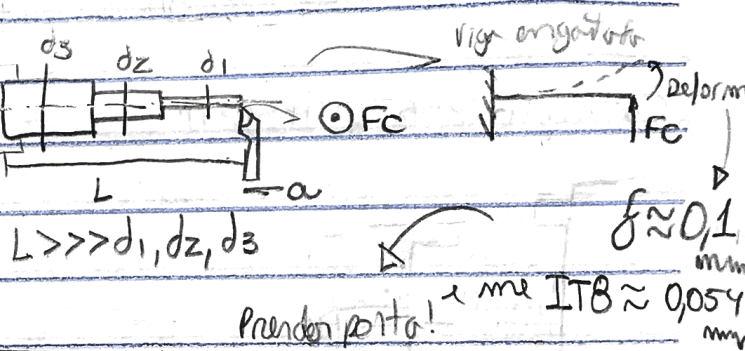 d3 d2 d1
Viga engastada
Deform
Fc
Fc
L
a
L>>>d1, d2, d3
f≈0,1
mm
Prender ponta! e me IT8 ≈ 0,054
mm